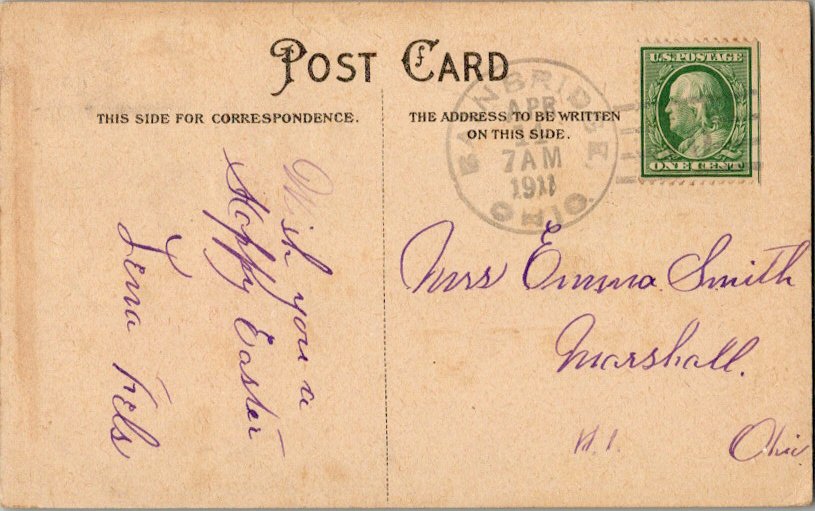 POST CARD
THIS SIDE FOR CORRESPONDENCE.
THE ADDRESS TO BE WRITTEN
ON THIS SIDE.
BAINBRIDGE, OHIO
APR
11
7 AM
1911
U.S. POSTAGE
ONE CENT
Wish you a
Happy Easter
Lena
Mrs Emma Smith
Marshall.
Ohio